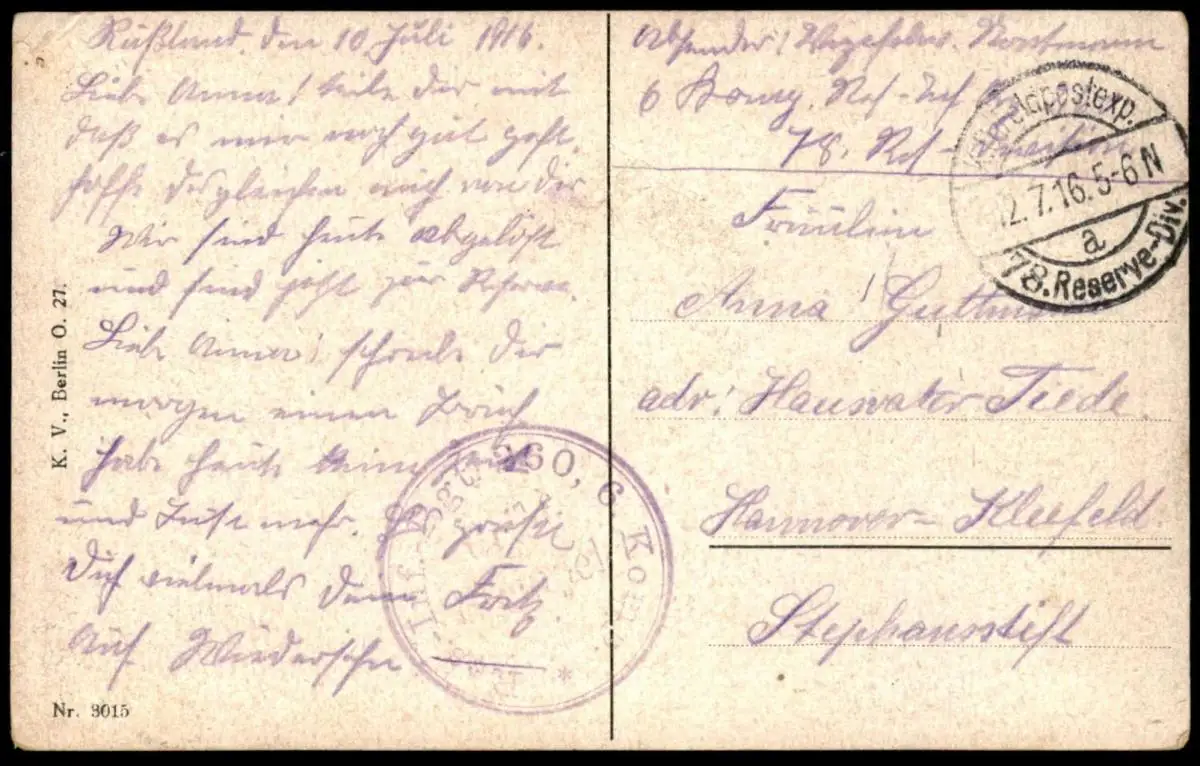 Rußland, den 10 Juli 1916.
Liebe Anna! teile dir mit
daß es mir noch gut geht,
hoffe desgleichen auch von dir
Wir sind heute abgelöst
und sind jetzt zur Reserve.
Liebe Anna! schreibe dir
morgen einen Brief,
habe heute keine Zeit
und Lust mehr. Es grüßt
Dich vielmals dein Fritz.
Auf Wiedersehn
K. V., Berlin O. 27.
Nr. 3015
Absender! Vizefeldw.
6 Komp. Res-Inf
78. Res-Division
Fräulein
Anna
adr! Hausvater Tiede
Hannover-Kleefeld
Stephansstift
Feldpostexp.
12.7.16.5-6N
a
78.Reserve-Div.
260, 6 Komp.